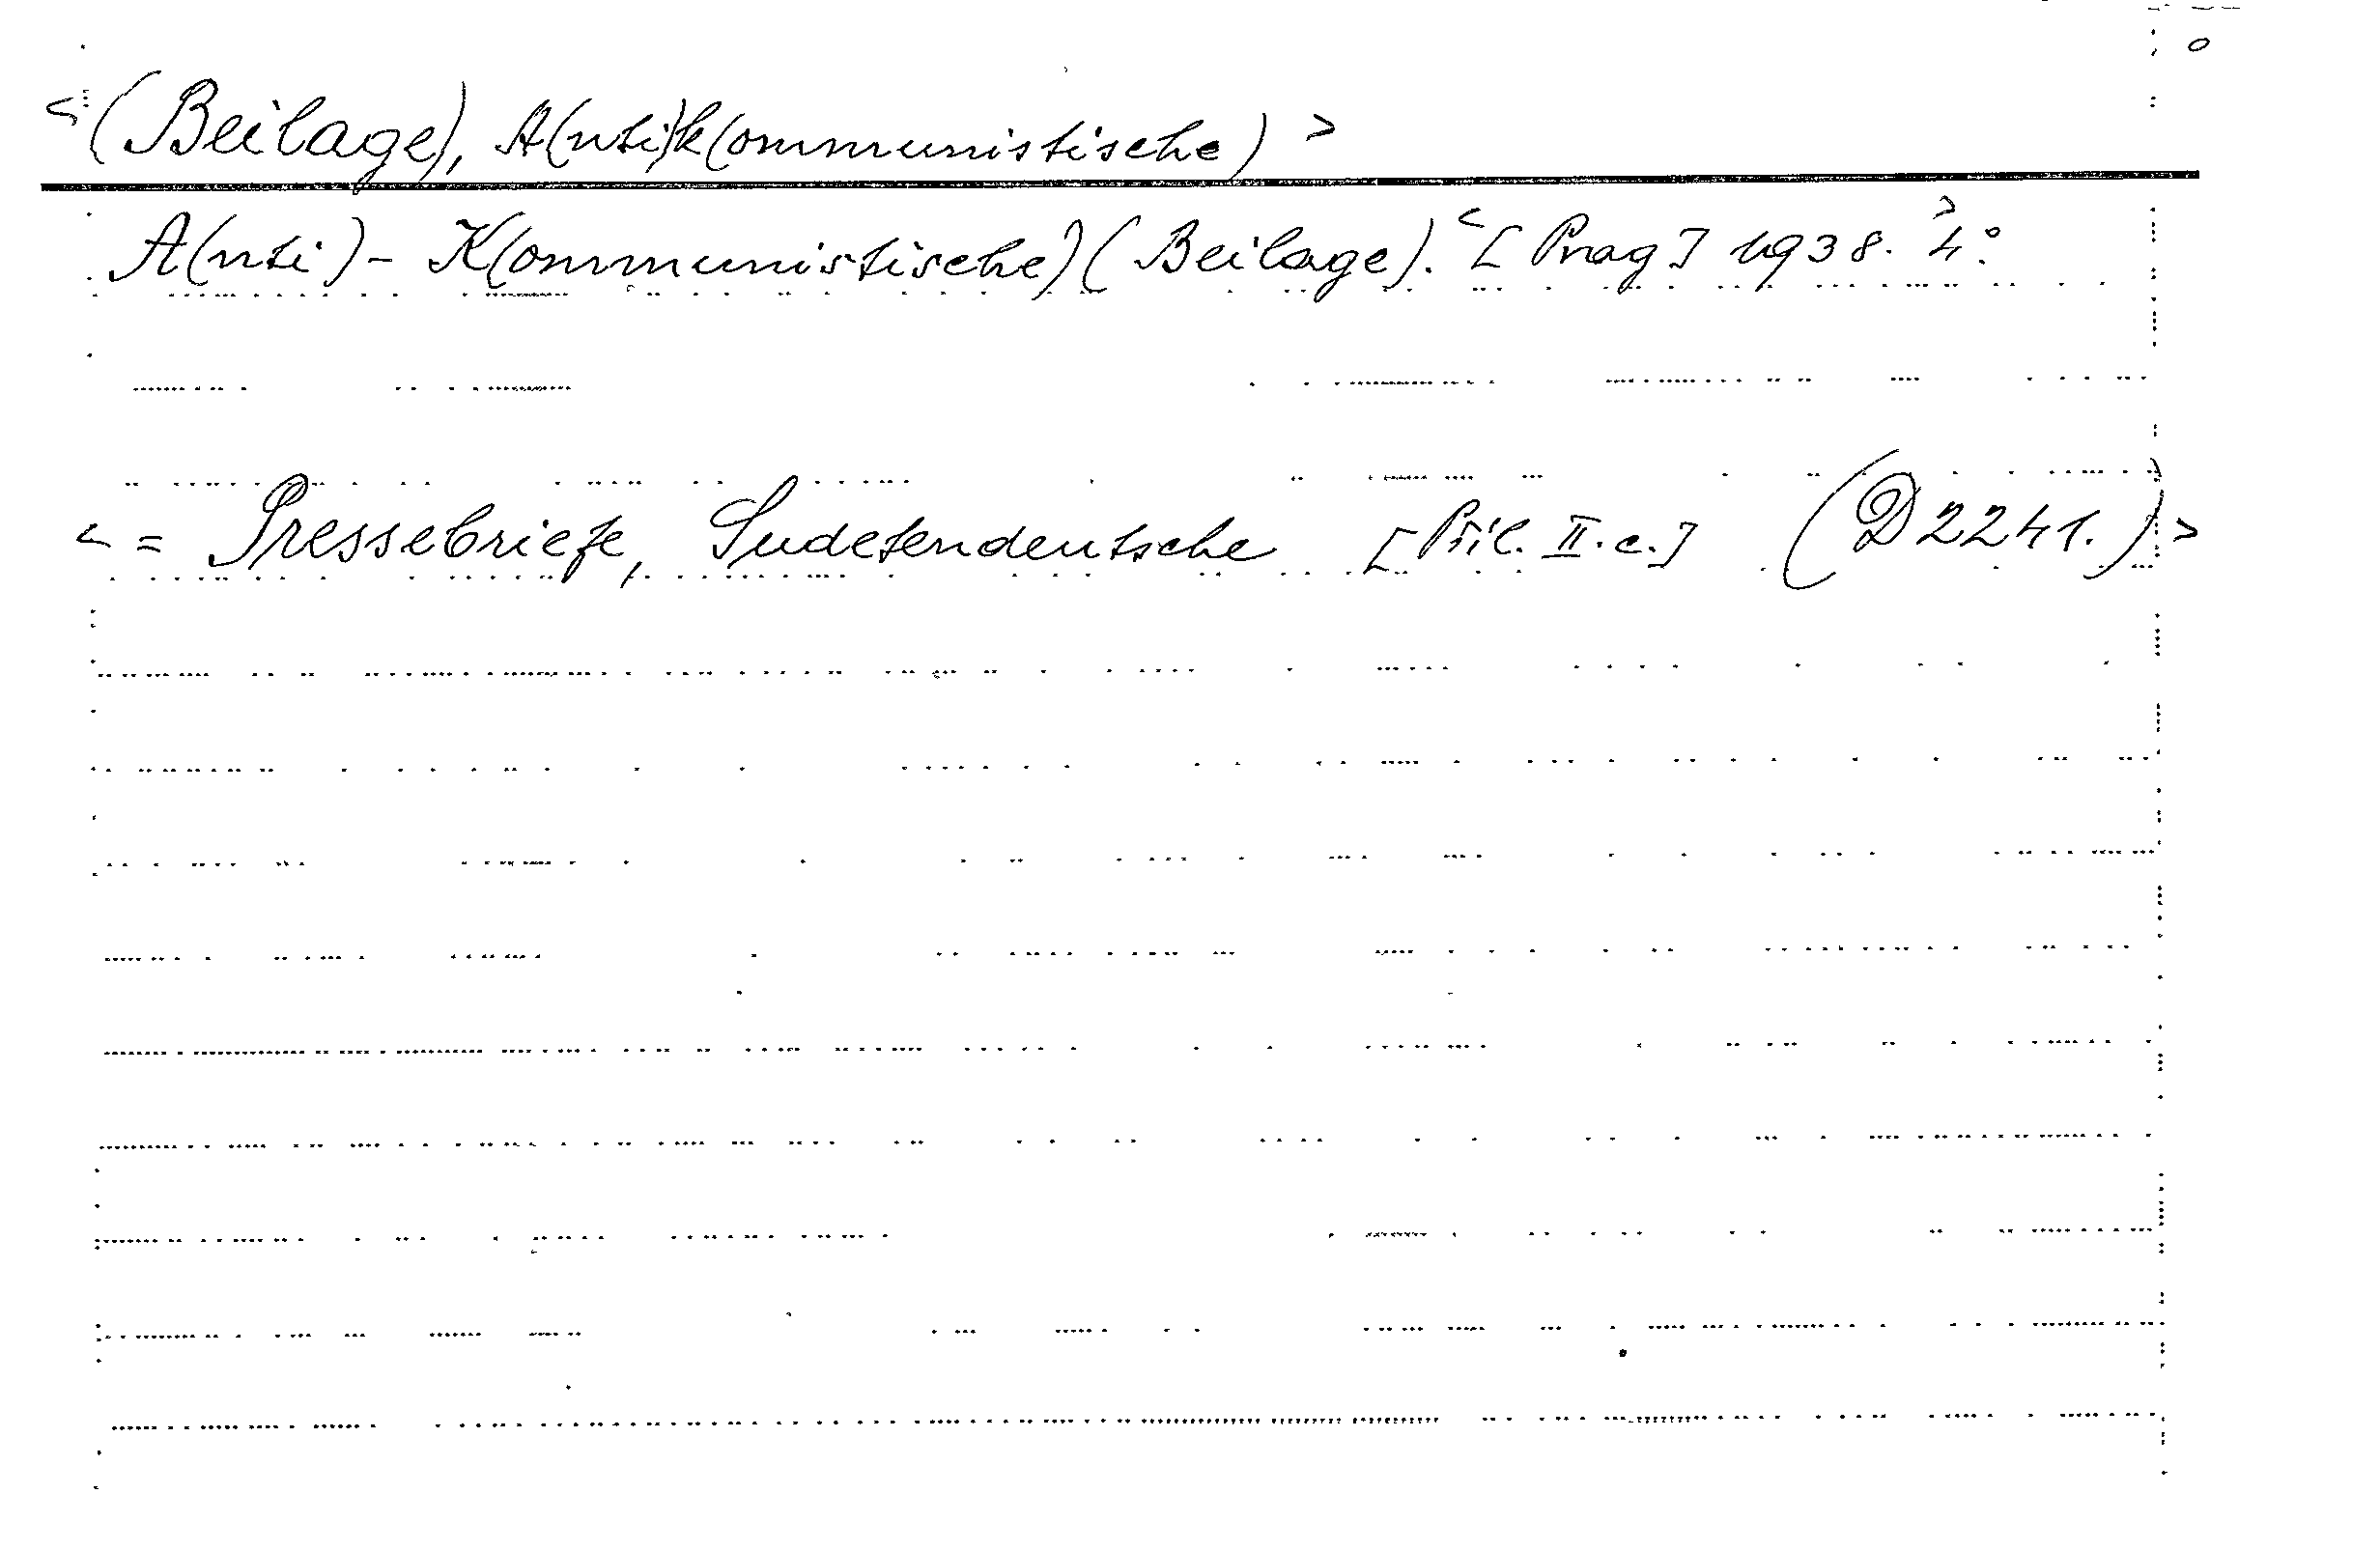 <(Beilage), A(nti)k(ommunistische)>
A(nti)-K(ommunistische)(Beilage). <[Prag] 1938.> 4°.
<= Pressebriefe, Sudetendeutsche [Příl. II. c.] (D 2241.)>